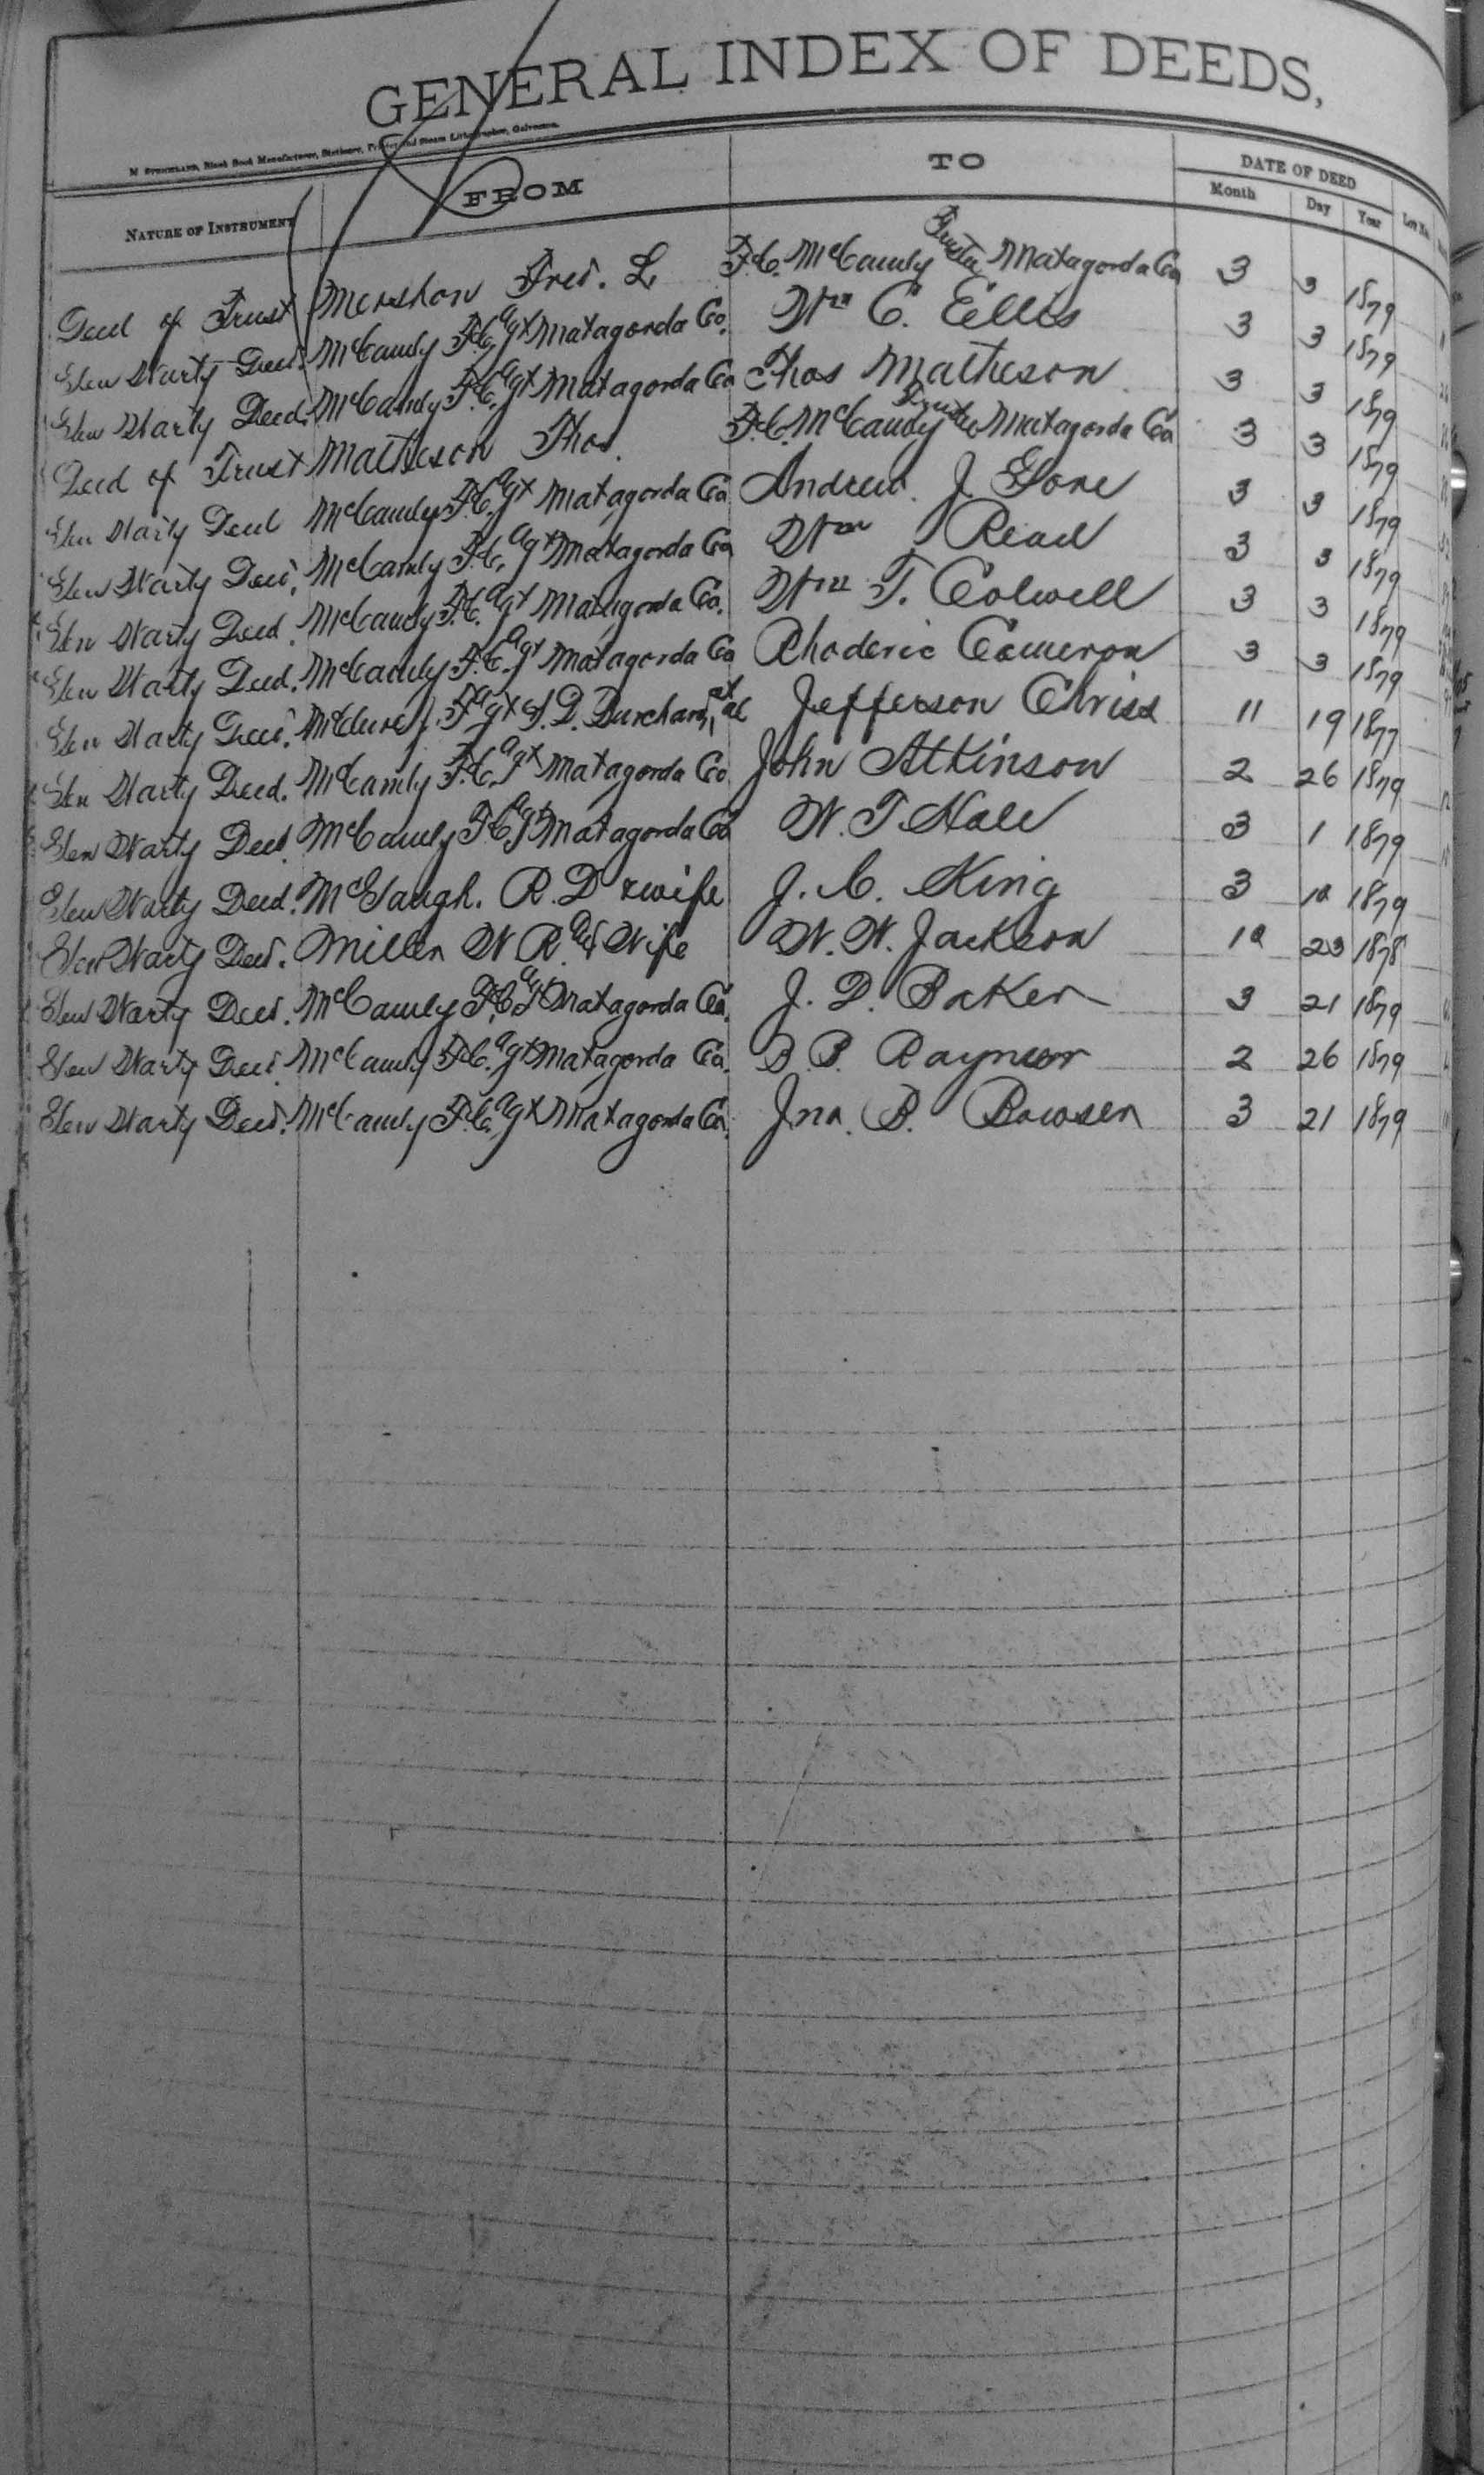 GENERAL INDEX OF DEEDS,
NATURE OF INSTRUMENT FROM TO DATE OF DEED
Month Day Year Lot No.
Deed of Trust Mershon Fred. L F.C. McCamly Trustee Matagorda Co 3 3 1879
Gen Warty Deed. McCamly F.C. Agt Matagorda Co. Wm C. Ellis 3 3 1879
Gen Warty Deed. McCamly F.C. Agt Matagorda Co Thos Matheson 3 3 1879
Deed of Trust Matheson Thos. F.C. McCamly Trustee Matagorda Co 3 3 1879
Gen Warty Deed McCamly F.C. Agt Matagorda Co Andrew J Gore 3 3 1879
Gen Warty Deed. McCamly F.C. Agt Matagorda Co Wm Read 3 3 1879
Gen Warty Deed. McCamly F.C. Agt Matagorda Co. Wm T. Colwell 3 3 1879
Gen Warty Deed. McCamly F.C. Agt Matagorda Co Rhoderic Cameron 3 3 1879
Gen Warty Deed. McClure J. F Agt D. Burchard, et al Jefferson Chriss 11 19 1877
Gen Warty Deed. McCamly F.C. Agt Matagorda Co. John Atkinson 2 26 1879
Gen Warty Deed. McCamly F.C. Agt Matagorda Co W. T Hale 3 1 1879
Gen Warty Deed. McGaugh. R. D & wife J. C. King 3 10 1879
Gen Warty Deed. Miller W R. and Wife W. W. Jackson 10 23 1878
Gen Warty Deed. McCamly F.C. Agt Matagorda Co. J. D. Baker 3 21 1879
Gen Warty Deed. McCamly F.C. Agt Matagorda Co. B. B. Raynor 2 26 1879
Gen Warty Deed. McCamly F.C. Agt Matagorda Co. Jno. B. Bowser 3 21 1879